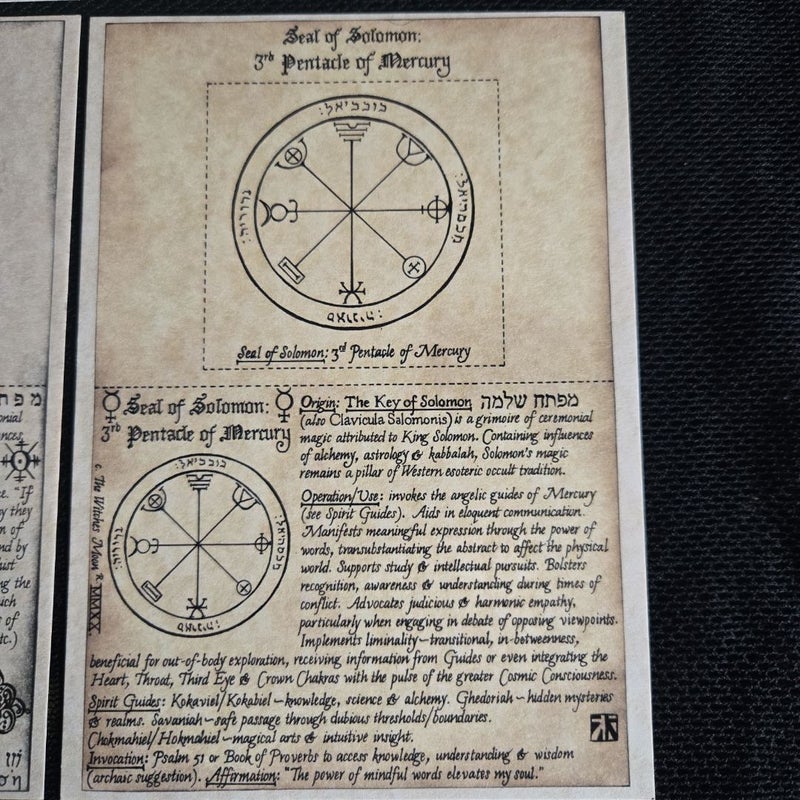 Seal of Solomon:
3rd Pentacle of Mercury
כוכביאל:
גדוריה:
Seal of Solomon: 3rd Pentacle of Mercury
☿ Seal of Solomon: ☿
3rd Pentacle of Mercury
כוכביאל:
גדוריה:
c. The Witches Moon R. MMXX
Origin: The Key of Solomon מפתח שלמה
(also Clavicula Salomonis) is a grimoire of ceremonial
magic attributed to King Solomon. Containing influences
of alchemy, astrology & kabbalah, Solomon's magic
remains a pillar of Western esoteric occult tradition.
Operation/Use: invokes the angelic guides of Mercury
(see Spirit Guides). Aids in eloquent communication.
Manifests meaningful expression through the power of
words, transubstantiating the abstract to affect the physical
world. Supports study & intellectual pursuits. Bolsters
recognition, awareness & understanding during times of
conflict. Advocates judicious & harmonic empathy,
particularly when engaging in debate of opposing viewpoints.
Implements liminality~transitional, in-betweenness,
beneficial for out-of-body exploration, receiving information from Guides or even integrating the
Heart, Throat, Third Eye & Crown Chakras with the pulse of the greater Cosmic Consciousness.
Spirit Guides: Kokaviel/Kokabiel~knowledge, science & alchemy. Ghedoriah~hidden mysteries
& realms. Savaniah~safe passage through dubious thresholds/boundaries.
Chokmahiel/Hokmahiel~magical arts & intuitive insight.
Invocation: Psalm 51 or Book of Proverbs to access knowledge, understanding & wisdom
(archaic suggestion). Affirmation: "The power of mindful words elevates my soul."